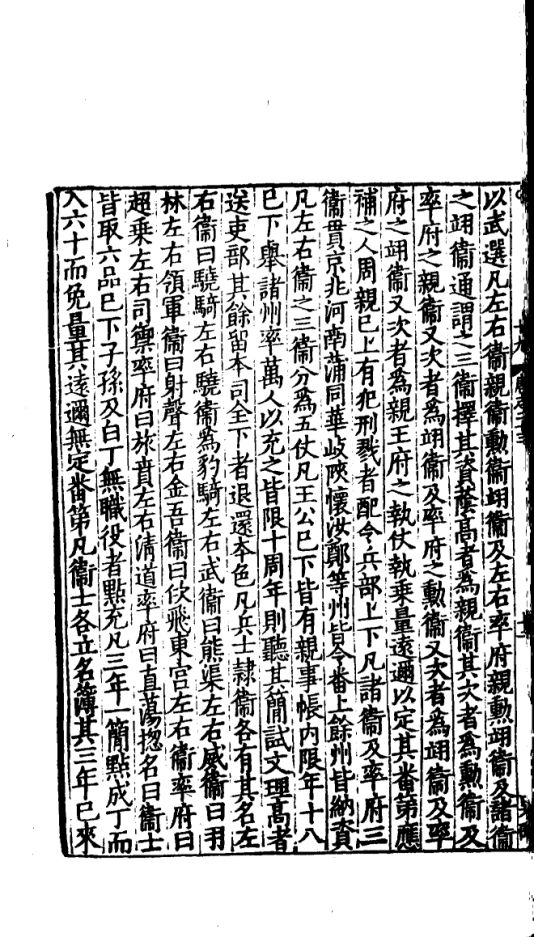 以武選凡左右衞親衞勳衞翊衞及左右率府親勳翊衞及諸衞
之翊衞通謂之三衞擇其資蔭髙者爲親衞其次者爲勳衞及
率府之親衞又次者爲翊衞及率府之勳衞又次者爲翊衞及率
府之翊衞又次者爲親王府之執仗執乗量遠邇以定其畨第應
補之人周親已上有犯刑戮者配令兵部上下凡諸衞及率府三
衞貫京兆河南蒲同華岐陜懷汝鄭等州皆令畨上餘州皆納資
凡左右衞之三衞分爲五仗凡王公已下皆有親事帳内限年十八
已下舉諸州率萬人以充之皆限十周年則聽其簡試文理髙者
送吏部其餘留本司全下者退還本色凡兵士隷衞各有其名左
右衞曰驍騎左右驍衞爲豹騎左右武衞曰熊渠左右威衞曰羽
林左右領軍衞曰射聲左右金吾衞曰佽飛東宫左右衞率府曰
超乗左右司禦率府曰旅賁左右清道率府曰直蕩揔名曰衞士
皆取六品已下子孫及白丁無職役者點充凡三年一簡點成丁而
入六十而免量其遠邇無定畨第凡衞士各立名簿其三年已來